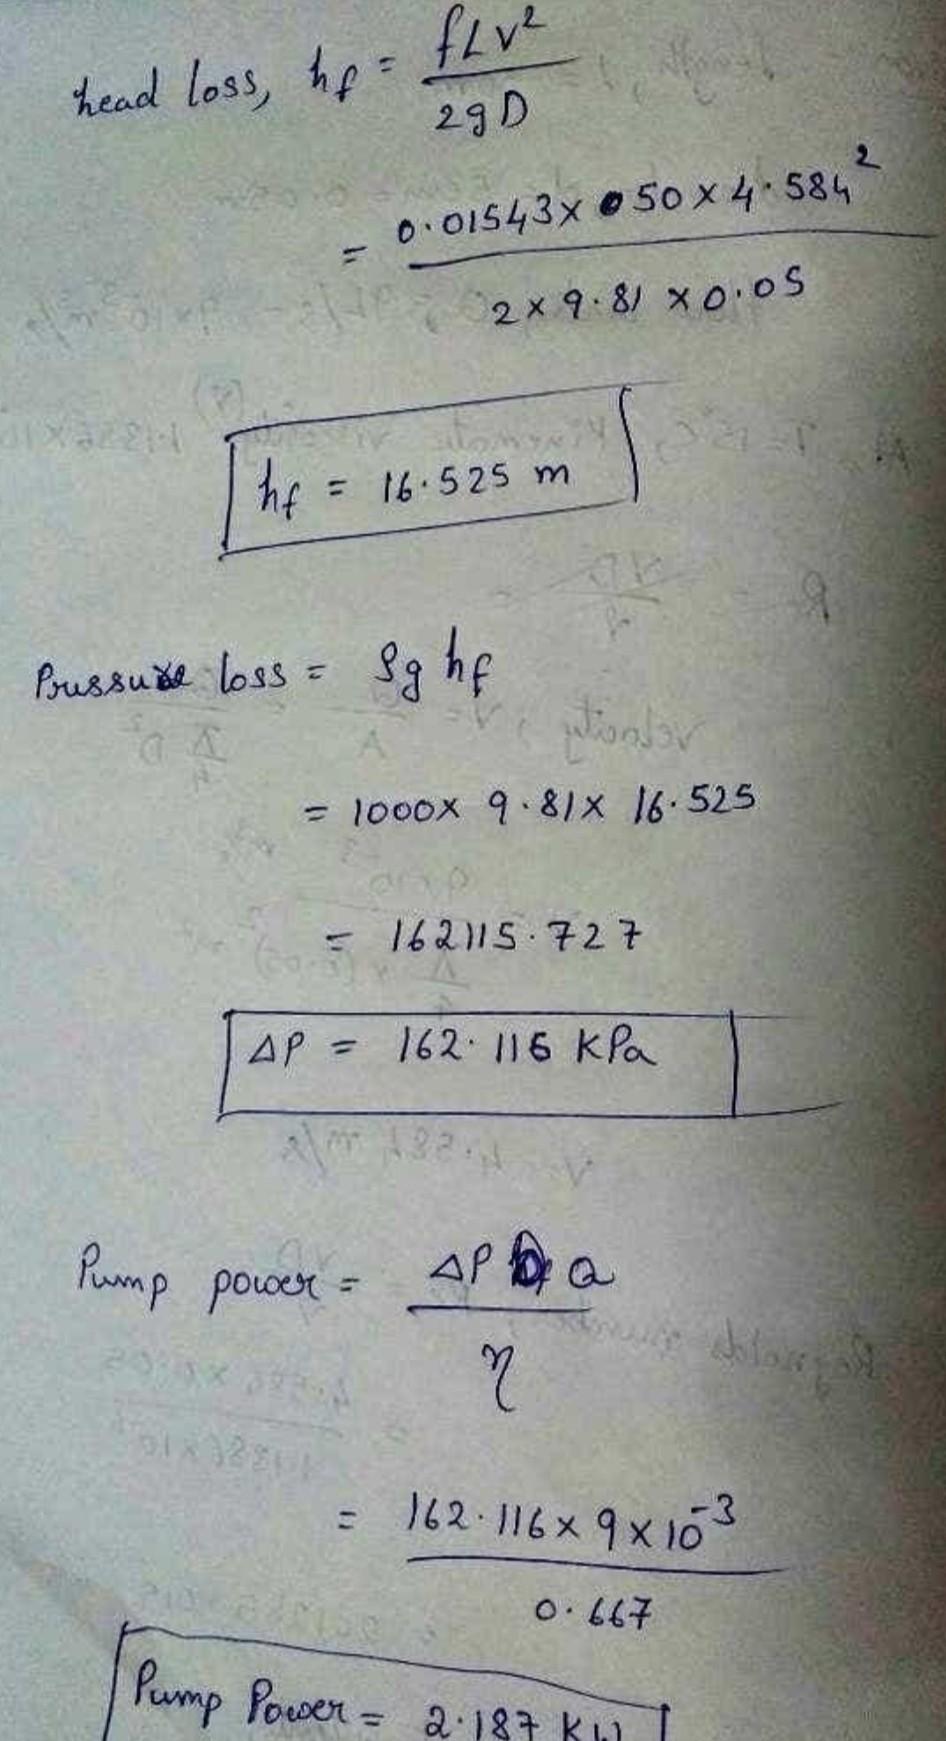 head loss, hf = fLV²/2gD
= 0.01543 × 50 × 4.584²/2 × 9.81 × 0.05
hf = 16.525 m
Pressure loss = ρg hf
= 1000 × 9.81 × 16.525
= 162115.727
ΔP = 162.116 KPa
Pump power = ΔP Q/η
= 162.116 × 9 × 10⁻³/0.667
Pump Power = 2.187 KW